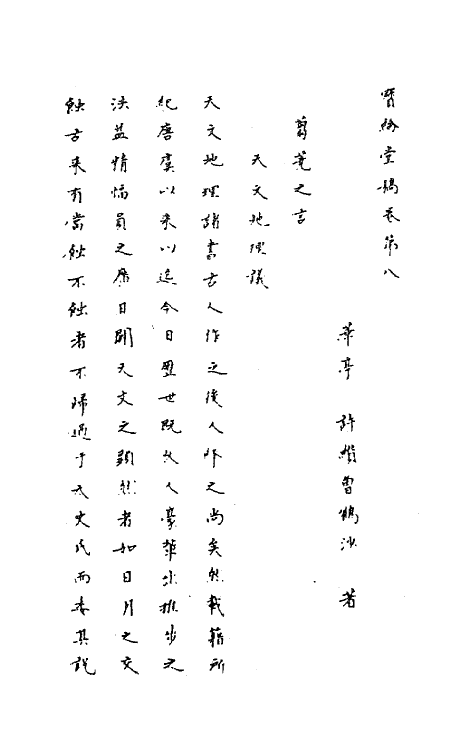 寶綸堂稿卷第八
華亭 許纘曾鶴沙 著
蒭蕘之言
天文地理議
天文地理諸書古人作之後人師之尚矣然載籍所
紀唐虞以來以迄今日歷世既久人豪輩出推步之
法益精幅員之廣日闢天文之顯然者如日月之交
蝕古來有當蝕不蝕者不歸過于天文氏而委其說